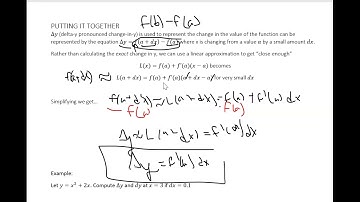 f(b) - f(a)
PUTTING IT TOGETHER
Δy (delta-y pronounced change-in-y) is used to represent the change in the value of the function can be
represented by the equation Δy = f(a + dx) − f(a) where x is changing from a value a by a small amount dx.
Rather than calculating the exact change in y, we can use a linear approximation to get "close enough"
L(x) = f(a) + f'(a)(x − a) becomes
f(a+dx) ≈ L(a + dx) = f(a) + f'(a)(a + dx − a) for very small dx
Simplifying we get... f(a+dx) ≈ L(a+dx) = f(a) + f'(a) dx
-f(a) -f(a)
Δy ≈ L(a+dx) = f'(a) dx
Δy = f'(a) dx
Example:
Let y = x² + 2x. Compute Δy and dy at x = 3 if dx = 0.1